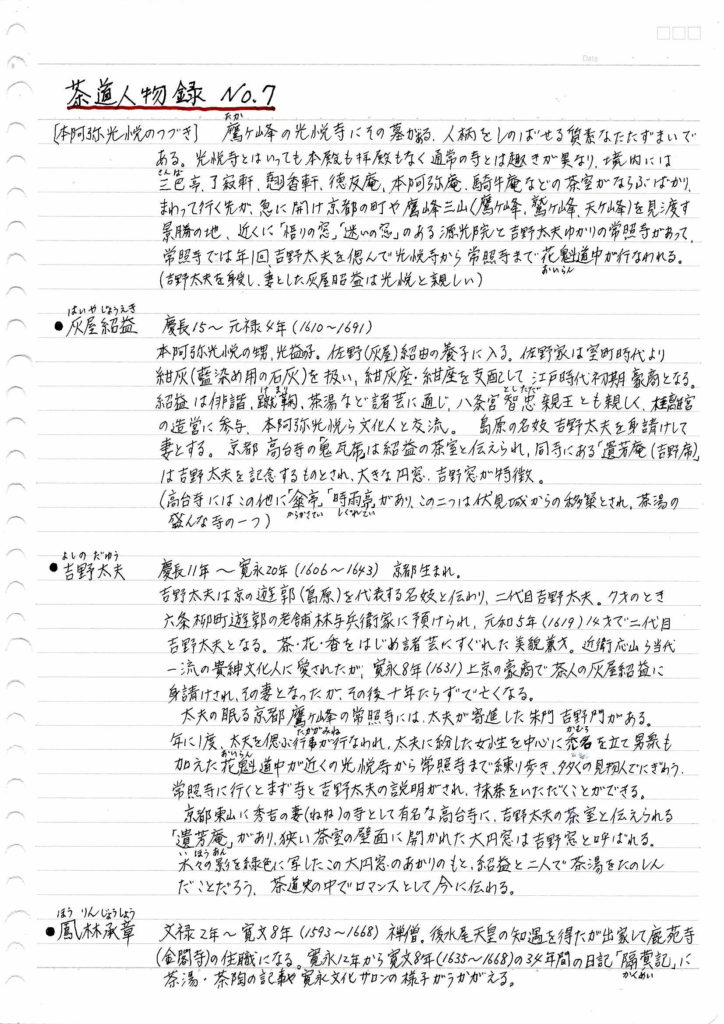 Date
茶道人物録 No.7
[本阿弥光悦のつづき] 鷹ヶ峰の光悦寺にその墓がある、人柄をしのばせる質素なたたずまいで
ある。光悦寺とはいっても本殿も拝殿もなく通常の寺とは趣きが異なり、境内には
三巴亭、了寂軒、翹香軒、徳友庵、本阿弥庵、騎牛庵などの茶室がならぶばかり、
さんぱ
まわって行く先が、急に開け京都の町や鷹峰三山(鷹ヶ峰、鷲ヶ峰、天ヶ峰)を見渡す
景勝の地、近くに「悟りの窓」「迷いの窓」のある源光院と吉野太夫ゆかりの常照寺があって、
常照寺では年1回、吉野太夫を偲んで光悦寺から常照寺まで花魁道中が行なわれる。
おいらん
(吉野太夫を身受し、妻とした灰屋紹益は光悦と親しい)
はいや じょうえき
●灰屋紹益 慶長15〜元禄4年(1610〜1691)
本阿弥光悦の甥、光益の子。佐野(灰屋)紹由の養子に入る。佐野家は室町時代より
紺灰(藍染め用の石灰)を扱い、紺灰座・紺座を支配して、江戸時代初期豪商となる。
けまり としただ
紹益は俳諧、蹴鞠、茶湯など諸芸に通じ、八条宮智忠親王とも親しく、桂離宮
の造営に参与、本阿弥光悦ら文化人と交流。 島原の名妓吉野太夫を身請けして
妻とする。京都 高台寺の「鬼瓦席」は紹益の茶室と伝えられ、同寺にある「遺芳庵(吉野席)」
は吉野太夫を記念するものとされ、大きな円窓、吉野窓が特徴。
(高台寺にはこの他に「傘亭」「時雨亭」があり、この二つは伏見城からの移築とされ、茶湯の
からかさてい しぐれてい
盛んな寺の一つ)
よしの だゆう
●吉野太夫 慶長11年〜寛永20年(1606〜1643) 京都生まれ。
吉野太夫は京の遊郭(島原)を代表する名妓と伝わり、二代目吉野太夫。7才のとき
六条柳町遊郭の老舗林与兵衛家に預けられ、元和5年(1619)14才で二代目
吉野太夫となる。茶・花・香をはじめ諸芸にすぐれた美貌兼才。近衛応山ら当代
一流の貴紳文化人に愛されたが、寛永8年(1631)上京の豪商で茶人の灰屋紹益に
身請けされ、その妻となったが、その後十年たらずで亡くなる。
太夫の眠る京都鷹ヶ峰の常照寺には、太夫が寄進した朱門 吉野門がある。
たかがみね かむろ
年に1度、太夫を偲ぶ行事が行なわれ、太夫に紛した女性を中心に禿名を立て男衆も
おいらん
加えた花魁道中が近くの光悦寺から常照寺まで練り歩き、多くの見物人でにぎわう。
常照寺に行くとまず寺と吉野太夫の説明がされ、抹茶をいただくことができる。
京都東山に秀吉の妻(ねね)の寺として有名な高台寺に、吉野太夫の茶室と伝えられる
「遺芳庵」があり、狭い茶室の壁面に開かれた大円窓は吉野窓と呼ばれる。
い ほうあん
木々の影を緑色に写したこの大円窓のあかりのもと、紹益と二人で茶湯をたのしん
だことだろう、 茶道史の中でロマンスとして今に伝わる。
ほう りん じょうしょう
●鳳林承章 文禄2年〜寛文8年(1593〜1668) 禅僧。後水尾天皇の知遇を得たが出家して鹿苑寺
(金閣寺)の住職になる。寛永12年から寛文8年(1635〜1668)の34年間の日記「隔蓂記」に
かくめい
茶湯・茶陶の記載や寛永文化サロンの様子がうかがえる。